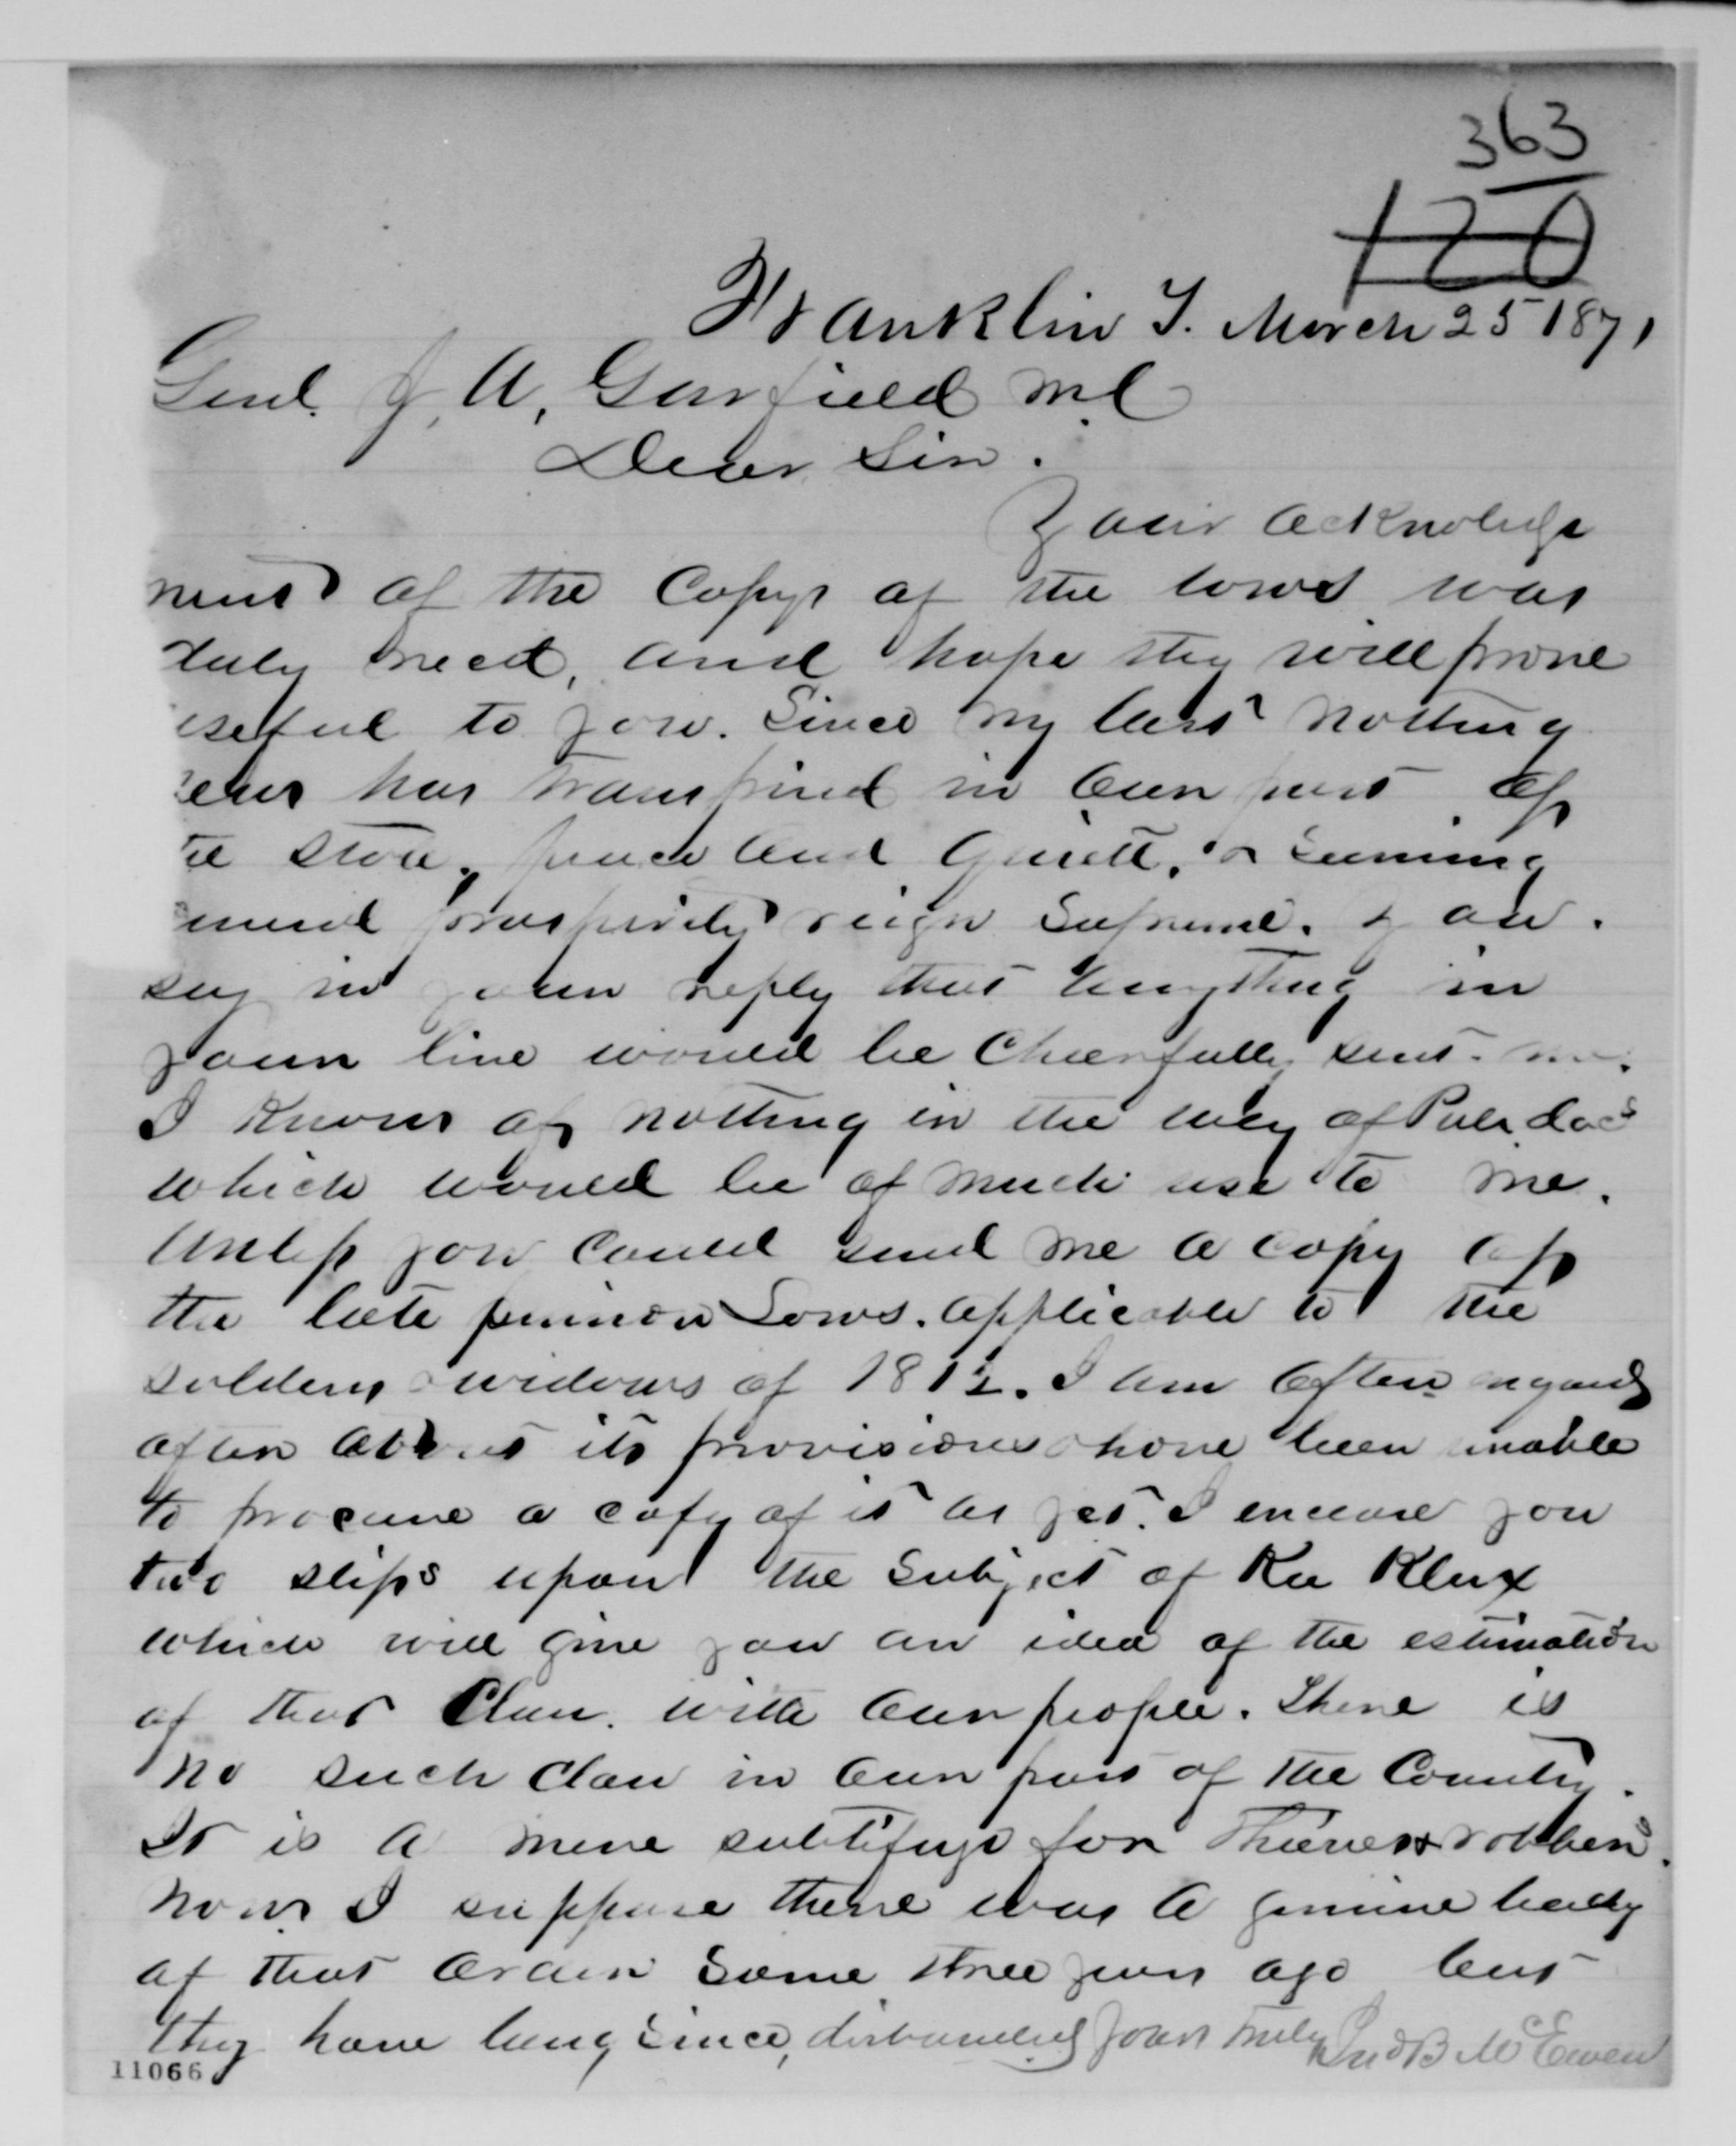 363
120
Franklin T. March 25 1871
Genl. J. A. Garfield M.C
Dear Sir.
Your acknowledge
ment of the Copys of the laws was
duly recd, and hope they will prove
useful to you. Since my last nothing
new has transpired in our part of
the State, peace and quiett, & seeming
prosperity reign supreme. You
say in your reply that anything in
your line would be cheerfully sent
I know of nothing in the way of Pub. docs
which would be of much use to me.
unless you could send me a copy of
the late pension Laws. applicable to the
soldiers & widows of 1812. I am often
after about its provisions & have been unable
to procure a copy of it as yet. I enclose you
two slips upon the subject of Ku Klux
which will give you an idea of the estimation
of that Clan. with our people. There is
no such clan in our part of the Country.
It is a mere subtifuge for Thieves & robbers.
now. I suppose there was a genuine body
of that order some three years ago but
they have long since, disbanded Yours Truly Jno B McEwen
11066